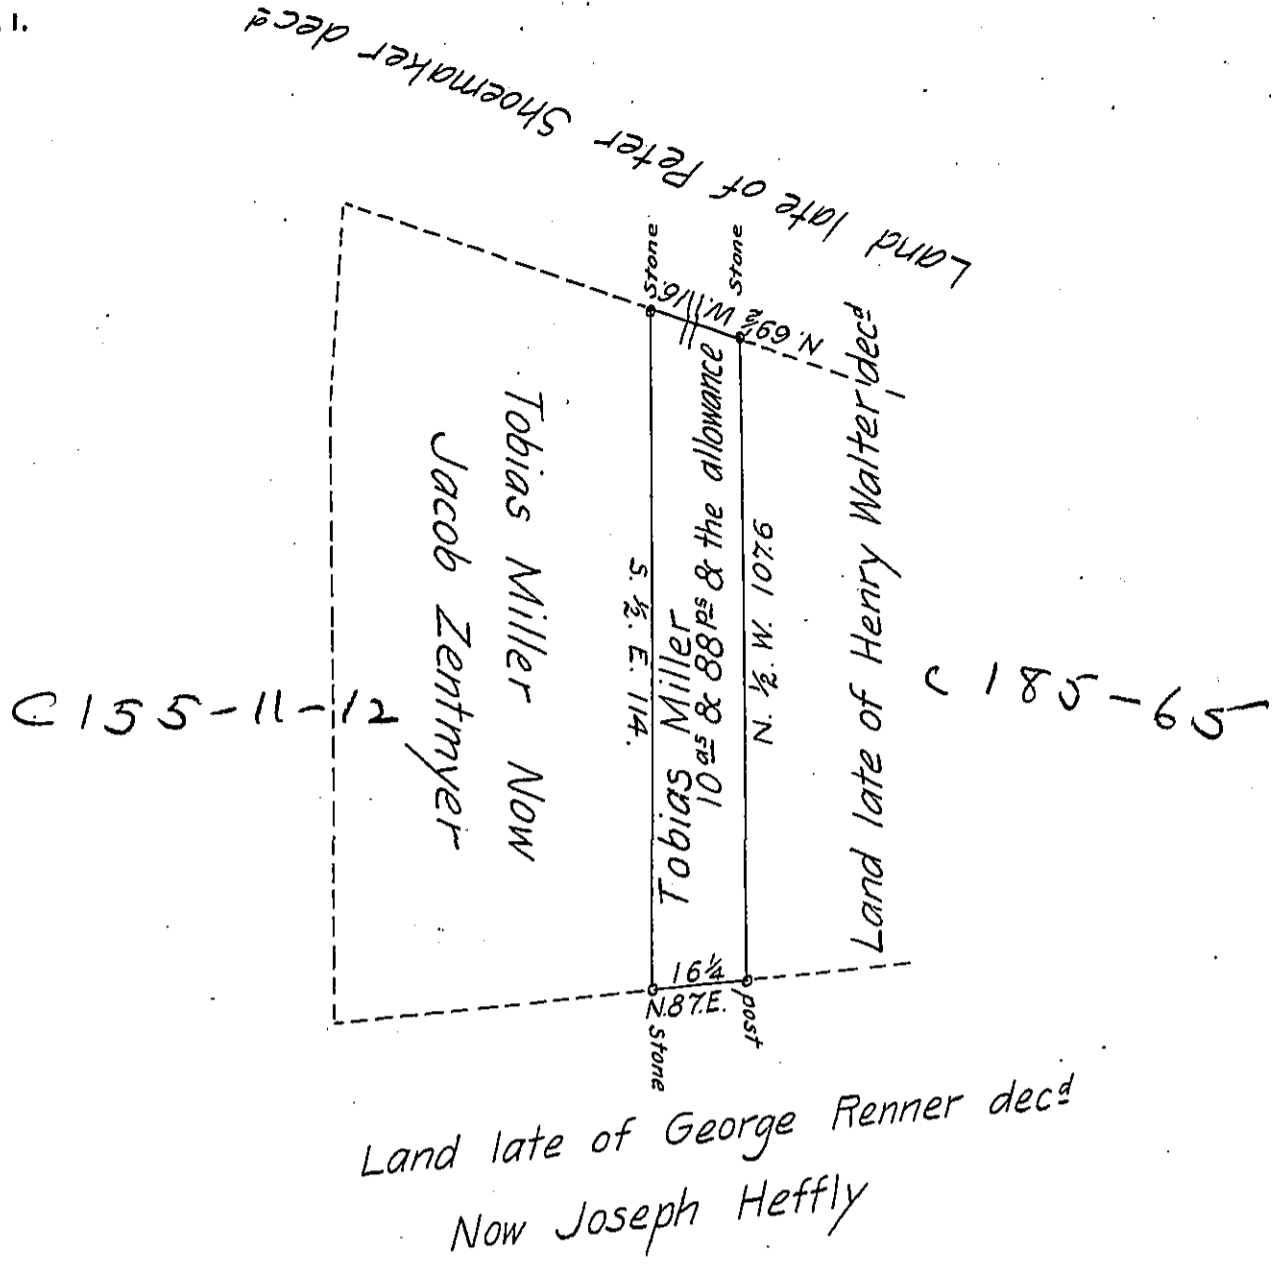 1.
Land late of Peter Shoemaker decd
Stone
Stone
N. 69½ W. 16.
Tobias Miller Now
Jacob Zentmyer
S. ½. E. 114.
Tobias Miller
10 as & 88 ps & the allowance
N. ½. W. 107.6
Land late of Henry Walter decd
C155-11-12
C185-65
16¼
N.87.E.
Stone
post
Land late of George Renner decd
Now Joseph Heffly